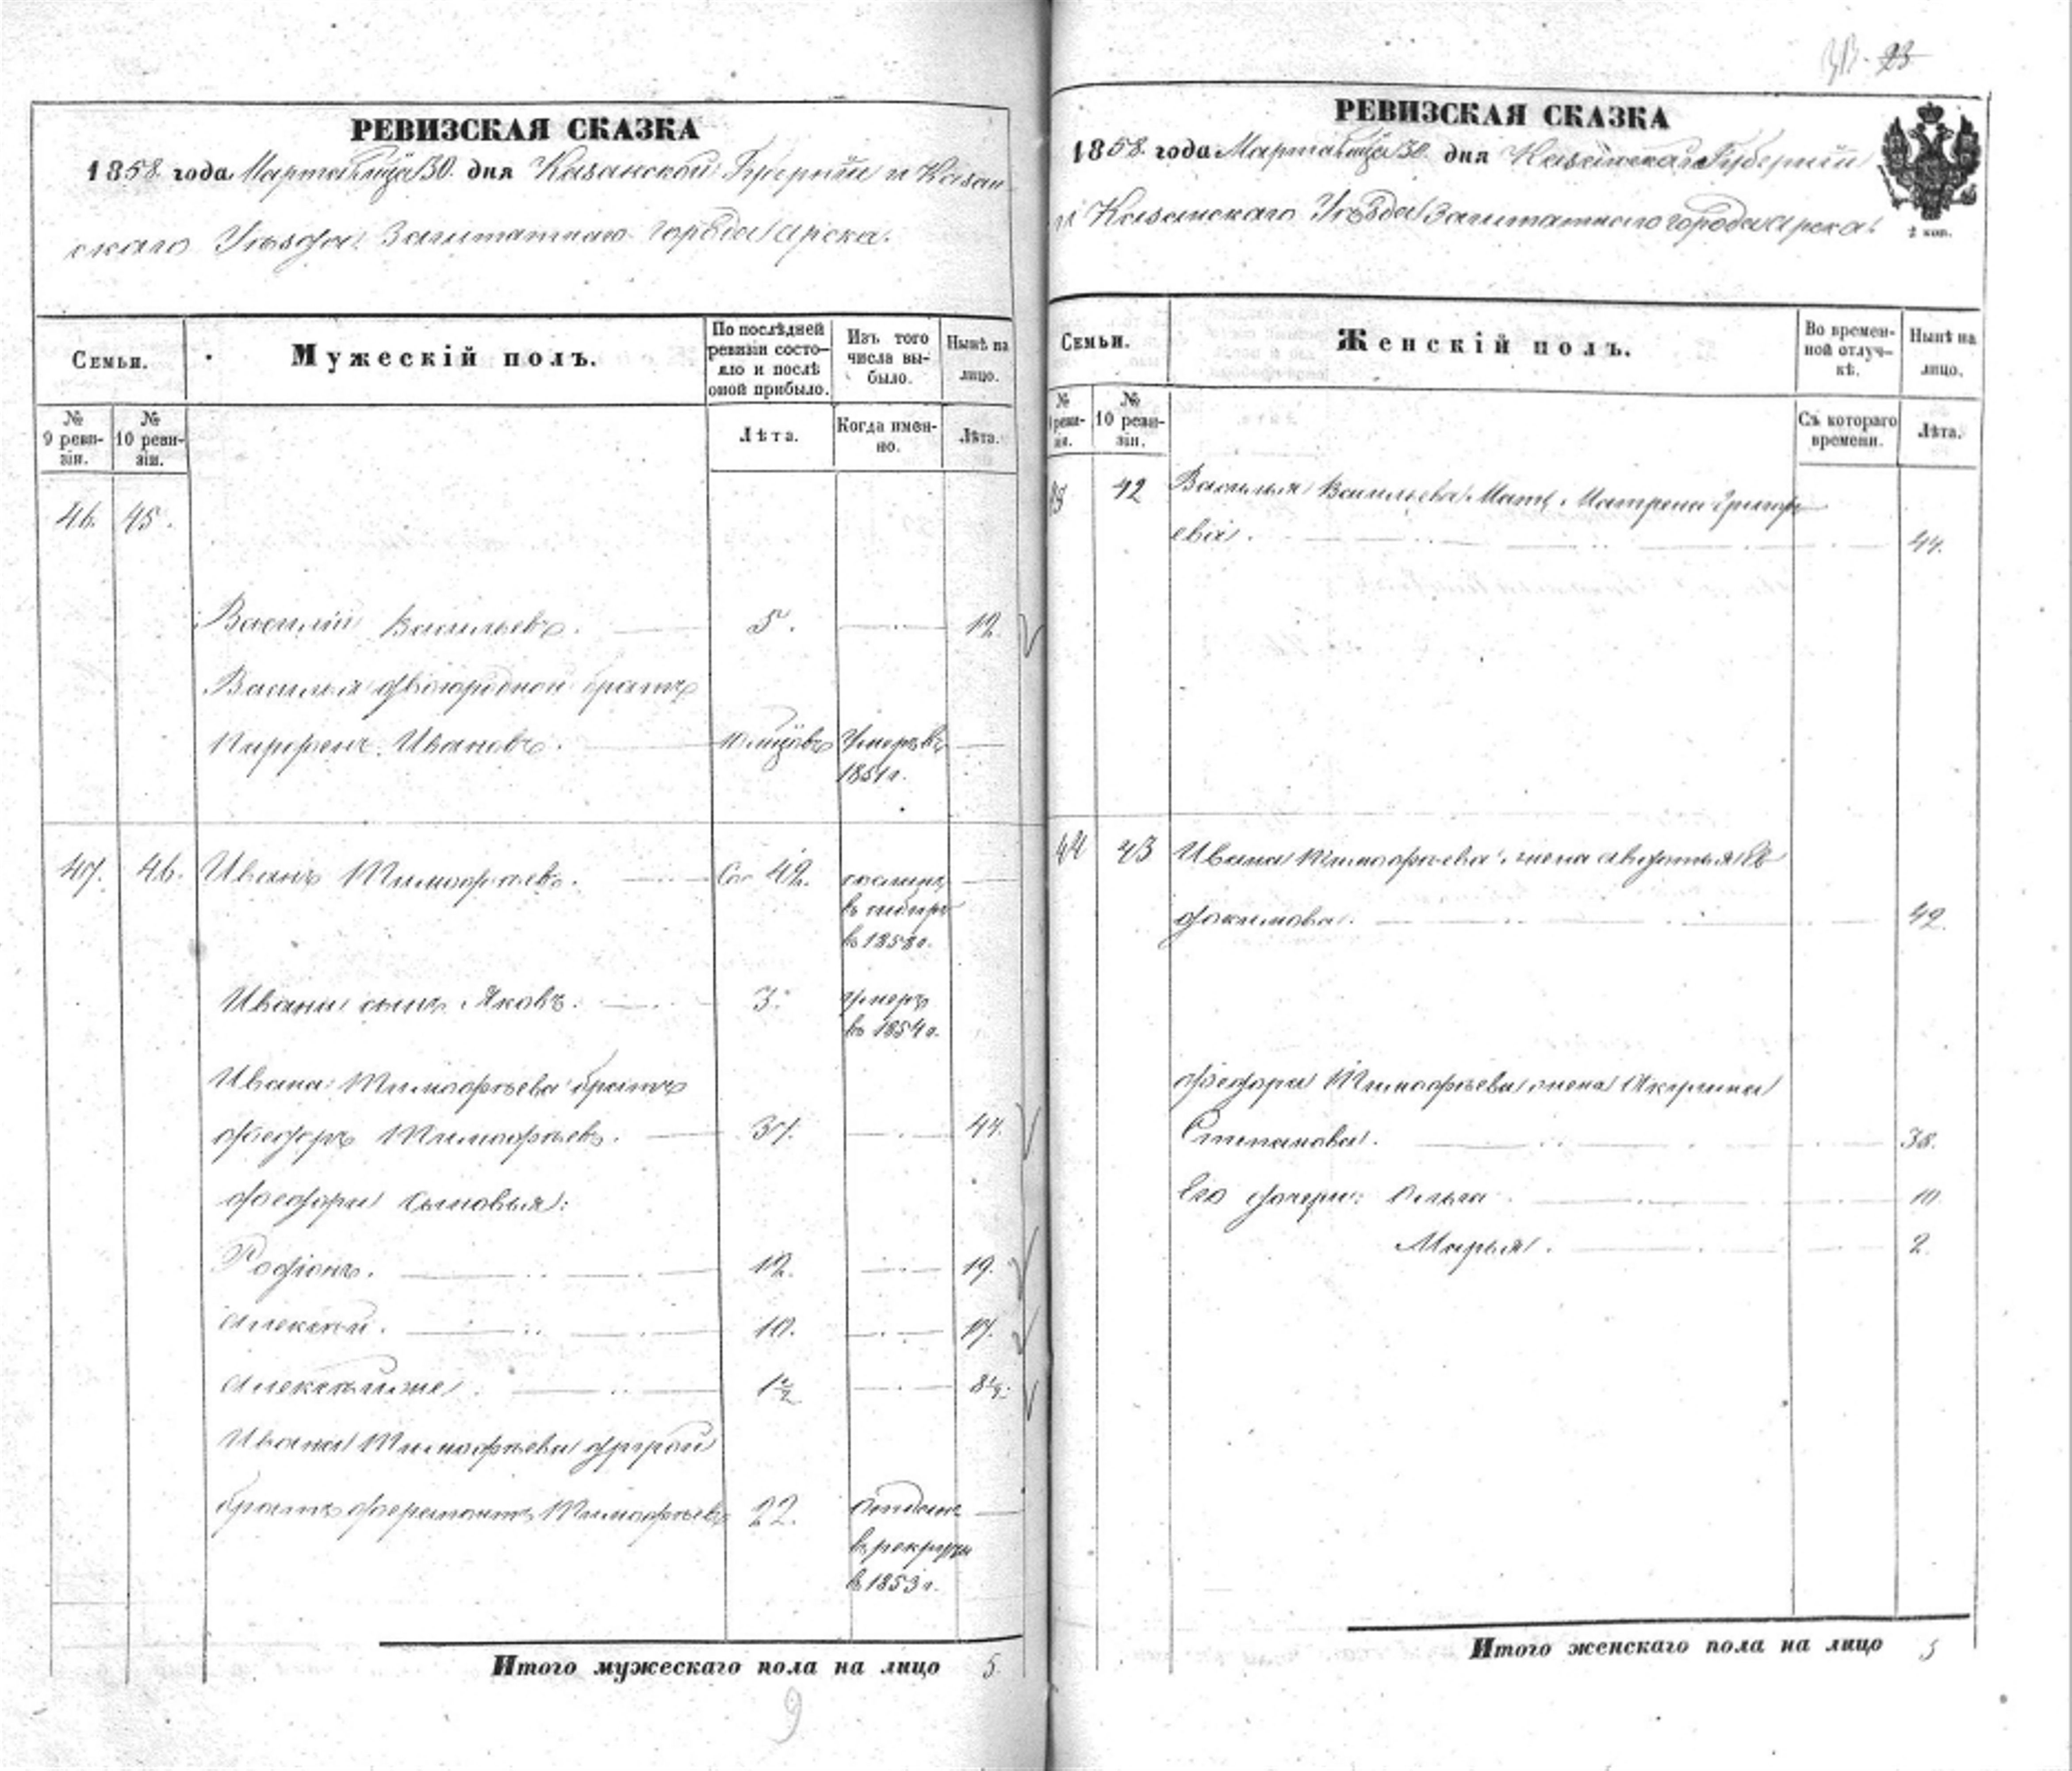 23
РЕВИЗСКАЯ СКАЗКА
1858 года Марта 30 дня Казанской Губерніи и Казан-
скаго Уѣзда Заштатнаго города Арска.
Семьи.
Мужескій полъ.
По послѣдней ревизіи состо-
яло и послѣ оной прибыло.
Изъ того числа вы-
было.
Нынѣ на лицо.
№ 9 реви-
зіи.
№ 10 реви-
зіи.
Лѣта.
Когда имен-
но.
Лѣта.
46. 45.
Василій Васильевъ. 5. 12.
Василья двоюродной братъ
Парфенъ Ивановъ. Умеръ въ
1851 г.
47. 46. Иванъ Тимофѣевъ. 42. сосланъ
въ сибирь
въ 1858 г.
Ивана сынъ Яковъ. 3. умеръ
въ 1854 г.
Ивана Тимофѣева братъ
Федоръ Тимофѣевъ. 37. 44.
Федора сыновья:
Родіонъ. 12. 19.
Алексѣй. 10. 17.
1½ 8½.
Ивана Тимофѣева другой
братъ Ферапонтъ Тимофѣевъ 22. Отданъ
в рекруты
в 1853 г.
Итого мужескаго пола на лицо 5
9
РЕВИЗСКАЯ СКАЗКА
1858 года Марта 30 дня Казанской Губерніи
и Казанскаго Уѣзда Заштатнаго города Арска.
2 коп.
Семьи.
Женскій полъ.
Во времен-
ной отлуч-
кѣ.
Нынѣ на лицо.
№ реви-
зіи.
№ 10 реви-
зіи.
Съ котораго времени.
Лѣта.
42 Василья Васильева Мать Матрена Григорь-
ева. 44.
44 43 Ивана Тимофѣева жена Авдотья Ев-
докимова. 42.
Федора Тимофѣева жена Акулина
Степанова. 38.
Его дочери: Ольга 10.
Марья. 2.
Итого женскаго пола на лицо 5